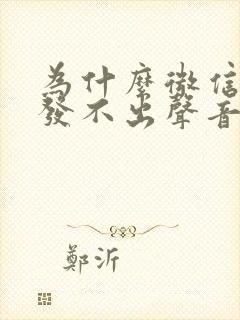 為什麼微信
發不出聲音
鄭沂